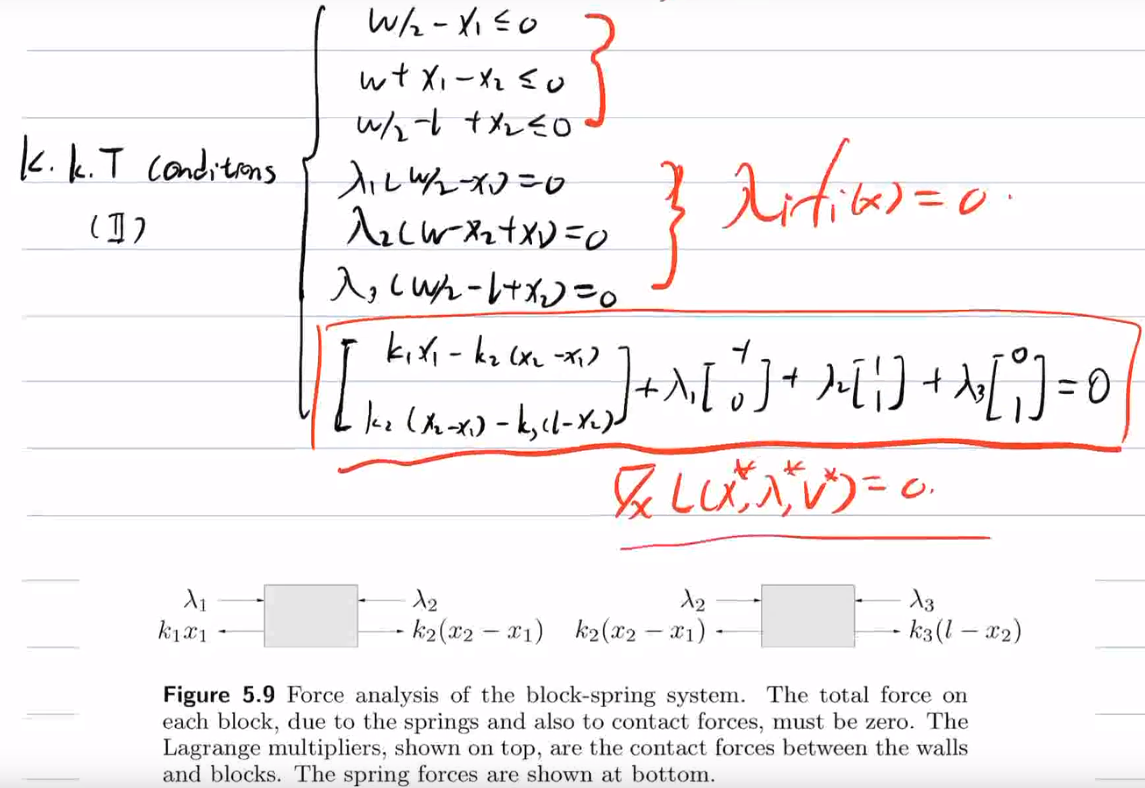 w/2 - x₁ ≤ 0
w + x₁ - x₂ ≤ 0
w/2 - l + x₂ ≤ 0
k. k. T conditions
(II)
λ₁(w/2 - x₁) = 0
λ₂(w - x₂ + x₁) = 0
λ₃(w/2 - l + x₂) = 0
λᵢfᵢ(x) = 0.
[k₁x₁ - k₂(x₂ - x₁) ; k₂(x₂ - x₁) - k₃(l - x₂)] + λ₁[-1 ; 0] + λ₂[1 ; 1] + λ₃[0 ; 1] = 0
∇ₓ L(x*, λ*, v*) = 0.
λ₁ λ₂ λ₂ λ₃
k₁x₁ k₂(x₂ − x₁) k₂(x₂ − x₁) k₃(l − x₂)
Figure 5.9 Force analysis of the block-spring system. The total force on
each block, due to the springs and also to contact forces, must be zero. The
Lagrange multipliers, shown on top, are the contact forces between the walls
and blocks. The spring forces are shown at bottom.